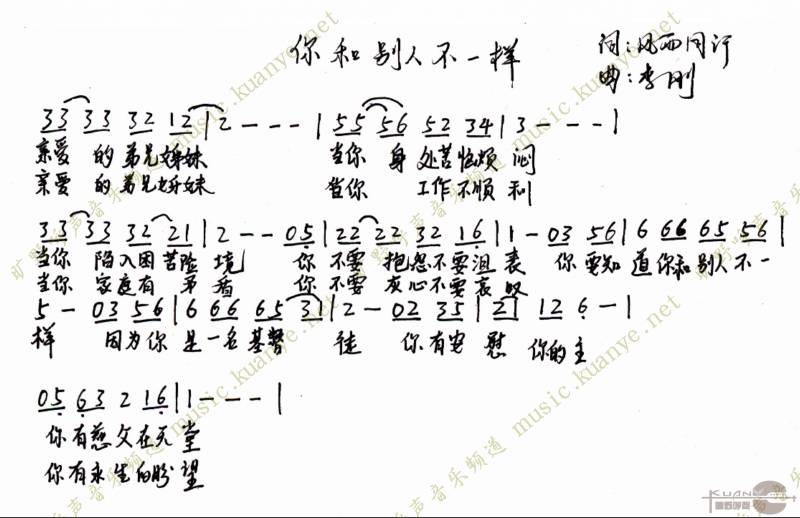 你和别人不一样
词:风雨同行
曲:李刚
33 33 32 12 | 2 - - - | 55 56 52 34 | 3 - - - |
亲爱 的弟兄姊妹 当你 身处苦恼烦闷
亲爱 的弟兄姊妹 当你 工作不顺利
33 33 32 21 | 2 - - 05 | 22 22 32 16 | 1 - 03 56 | 6 66 65 56 |
当你 陷入困苦险境 你不要抱怨不要沮丧 你要知道你和别人不一
当你 家庭有 你不要灰心不要哀叹
5 - 03 56 | 6 66 65 31 | 2 - 02 35 | 21 12 6 - |
样 因为你是一名基督徒 你有安慰你的主
05 63 2 16 | 1 - - - |
你有慈父在天堂
你有永生的盼望
旷野呼声音乐频道 music.kuanye.net
KUANYE
旷野呼声